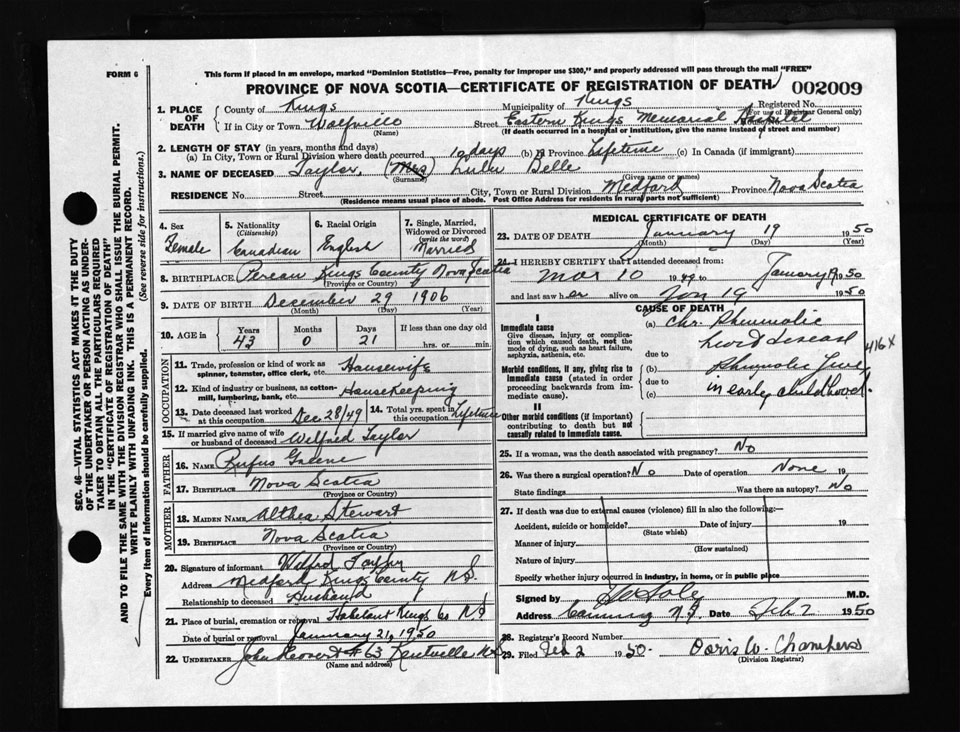 FORM 6
This form if placed in an envelope, marked "Dominion Statistics—Free, penalty for improper use $300," and properly addressed will pass through the mail "FREE"
PROVINCE OF NOVA SCOTIA—CERTIFICATE OF REGISTRATION OF DEATH 002009
1. PLACE OF DEATH
County of Kings Municipality of Kings Registered No.
(For use of Registrar General only)
If in City or Town Wolfville Street Eastern Kings Memorial Hospital
(Name) (If death occurred in a hospital or institution, give the name instead of street and number)
2. LENGTH OF STAY (in years, months and days)
(a) In City, Town or Rural Division where death occurred 19 days (b) In Province Lifetime (c) In Canada (if immigrant)
3. NAME OF DECEASED Taylor, (Mrs) Lulu Belle
(Surname) (Given name or names)
RESIDENCE No. Street City, Town or Rural Division Medford Province Nova Scotia
(Residence means usual place of abode. Post Office Address for residents in rural parts not sufficient)
4. Sex Female
5. Nationality (Citizenship) Canadian
6. Racial Origin English
7. Single, Married, Widowed or Divorced (write the word) Married
8. BIRTHPLACE Pereau Kings County Nova Scotia
(Province or Country)
9. DATE OF BIRTH December 29 1906
(Month) (Day) (Year)
10. AGE in Years 43 Months 0 Days 21 If less than one day old hrs. or min.
OCCUPATION
11. Trade, profession or kind of work as spinner, teamster, office clerk, etc. Housewife
12. Kind of industry or business, as cotton-mill, lumbering, bank, etc. Housekeeping
13. Date deceased last worked at this occupation Dec 28/49
14. Total yrs. spent in this occupation Lifetime
15. If married give name of wife or husband of deceased Wilfred Taylor
FATHER
16. NAME Rufus Greene
17. BIRTHPLACE Nova Scotia
(Province or Country)
MOTHER
18. MAIDEN NAME Althea Stewart
19. BIRTHPLACE Nova Scotia
(Province or Country)
20. Signature of informant Wilfred Taylor
Address Medford Kings County N.S.
Relationship to deceased Husband
21. Place of burial, cremation or removal Habitant Kings Co N.S
Date of burial or removal January 21, 1950
22. UNDERTAKER John # 63 Kentville N.S
(Name and address)
MEDICAL CERTIFICATE OF DEATH
23. DATE OF DEATH January 19 1950
(Month) (Day) (Year)
24. I HEREBY CERTIFY that I attended deceased from:
Mar 10 1949 to January 19 1950
and last saw her alive on Jan 19 1950
CAUSE OF DEATH
I
Immediate cause
Give disease, injury or complication which caused death, not the mode of dying, such as heart failure, asphyxia, asthenia, etc.
(a) Chr. Rhumatic
heart disease 416X
due to
Morbid conditions, if any, giving rise to immediate cause (stated in order proceeding backwards from immediate cause).
(b) Rhumatic
due to in early childhood.
(c)
II
Other morbid conditions (if important) contributing to death but not causally related to immediate cause.
25. If a woman, was the death associated with pregnancy? No
26. Was there a surgical operation? No Date of operation None 19
State findings Was there an autopsy? No
27. If death was due to external causes (violence) fill in also the following:
Accident, suicide or homicide? Date of injury 19
(State which)
Manner of injury
(How sustained)
Nature of injury
Specify whether injury occurred in industry, in home, or in public place
Signed by M.D.
Address Canning N.S Date Feb 2 1950
28. Registrar's Record Number
29. Filed Feb 2 1950. Doris W. Chambers
(Division Registrar)
SEC. 46—VITAL STATISTICS ACT MAKES IT THE DUTY
OF THE UNDERTAKER OR PERSON ACTING AS UNDER-
TAKER TO OBTAIN ALL THE PARTICULARS REQUIRED
IN THE "CERTIFICATE OF REGISTRATION OF DEATH"
AND TO FILE THE SAME WITH THE DIVISION REGISTRAR WHO SHALL ISSUE THE BURIAL PERMIT.
WRITE PLAINLY WITH UNFADING INK. THIS IS A PERMANENT RECORD.
Every item of Information should be carefully supplied. (See reverse side for instructions.)